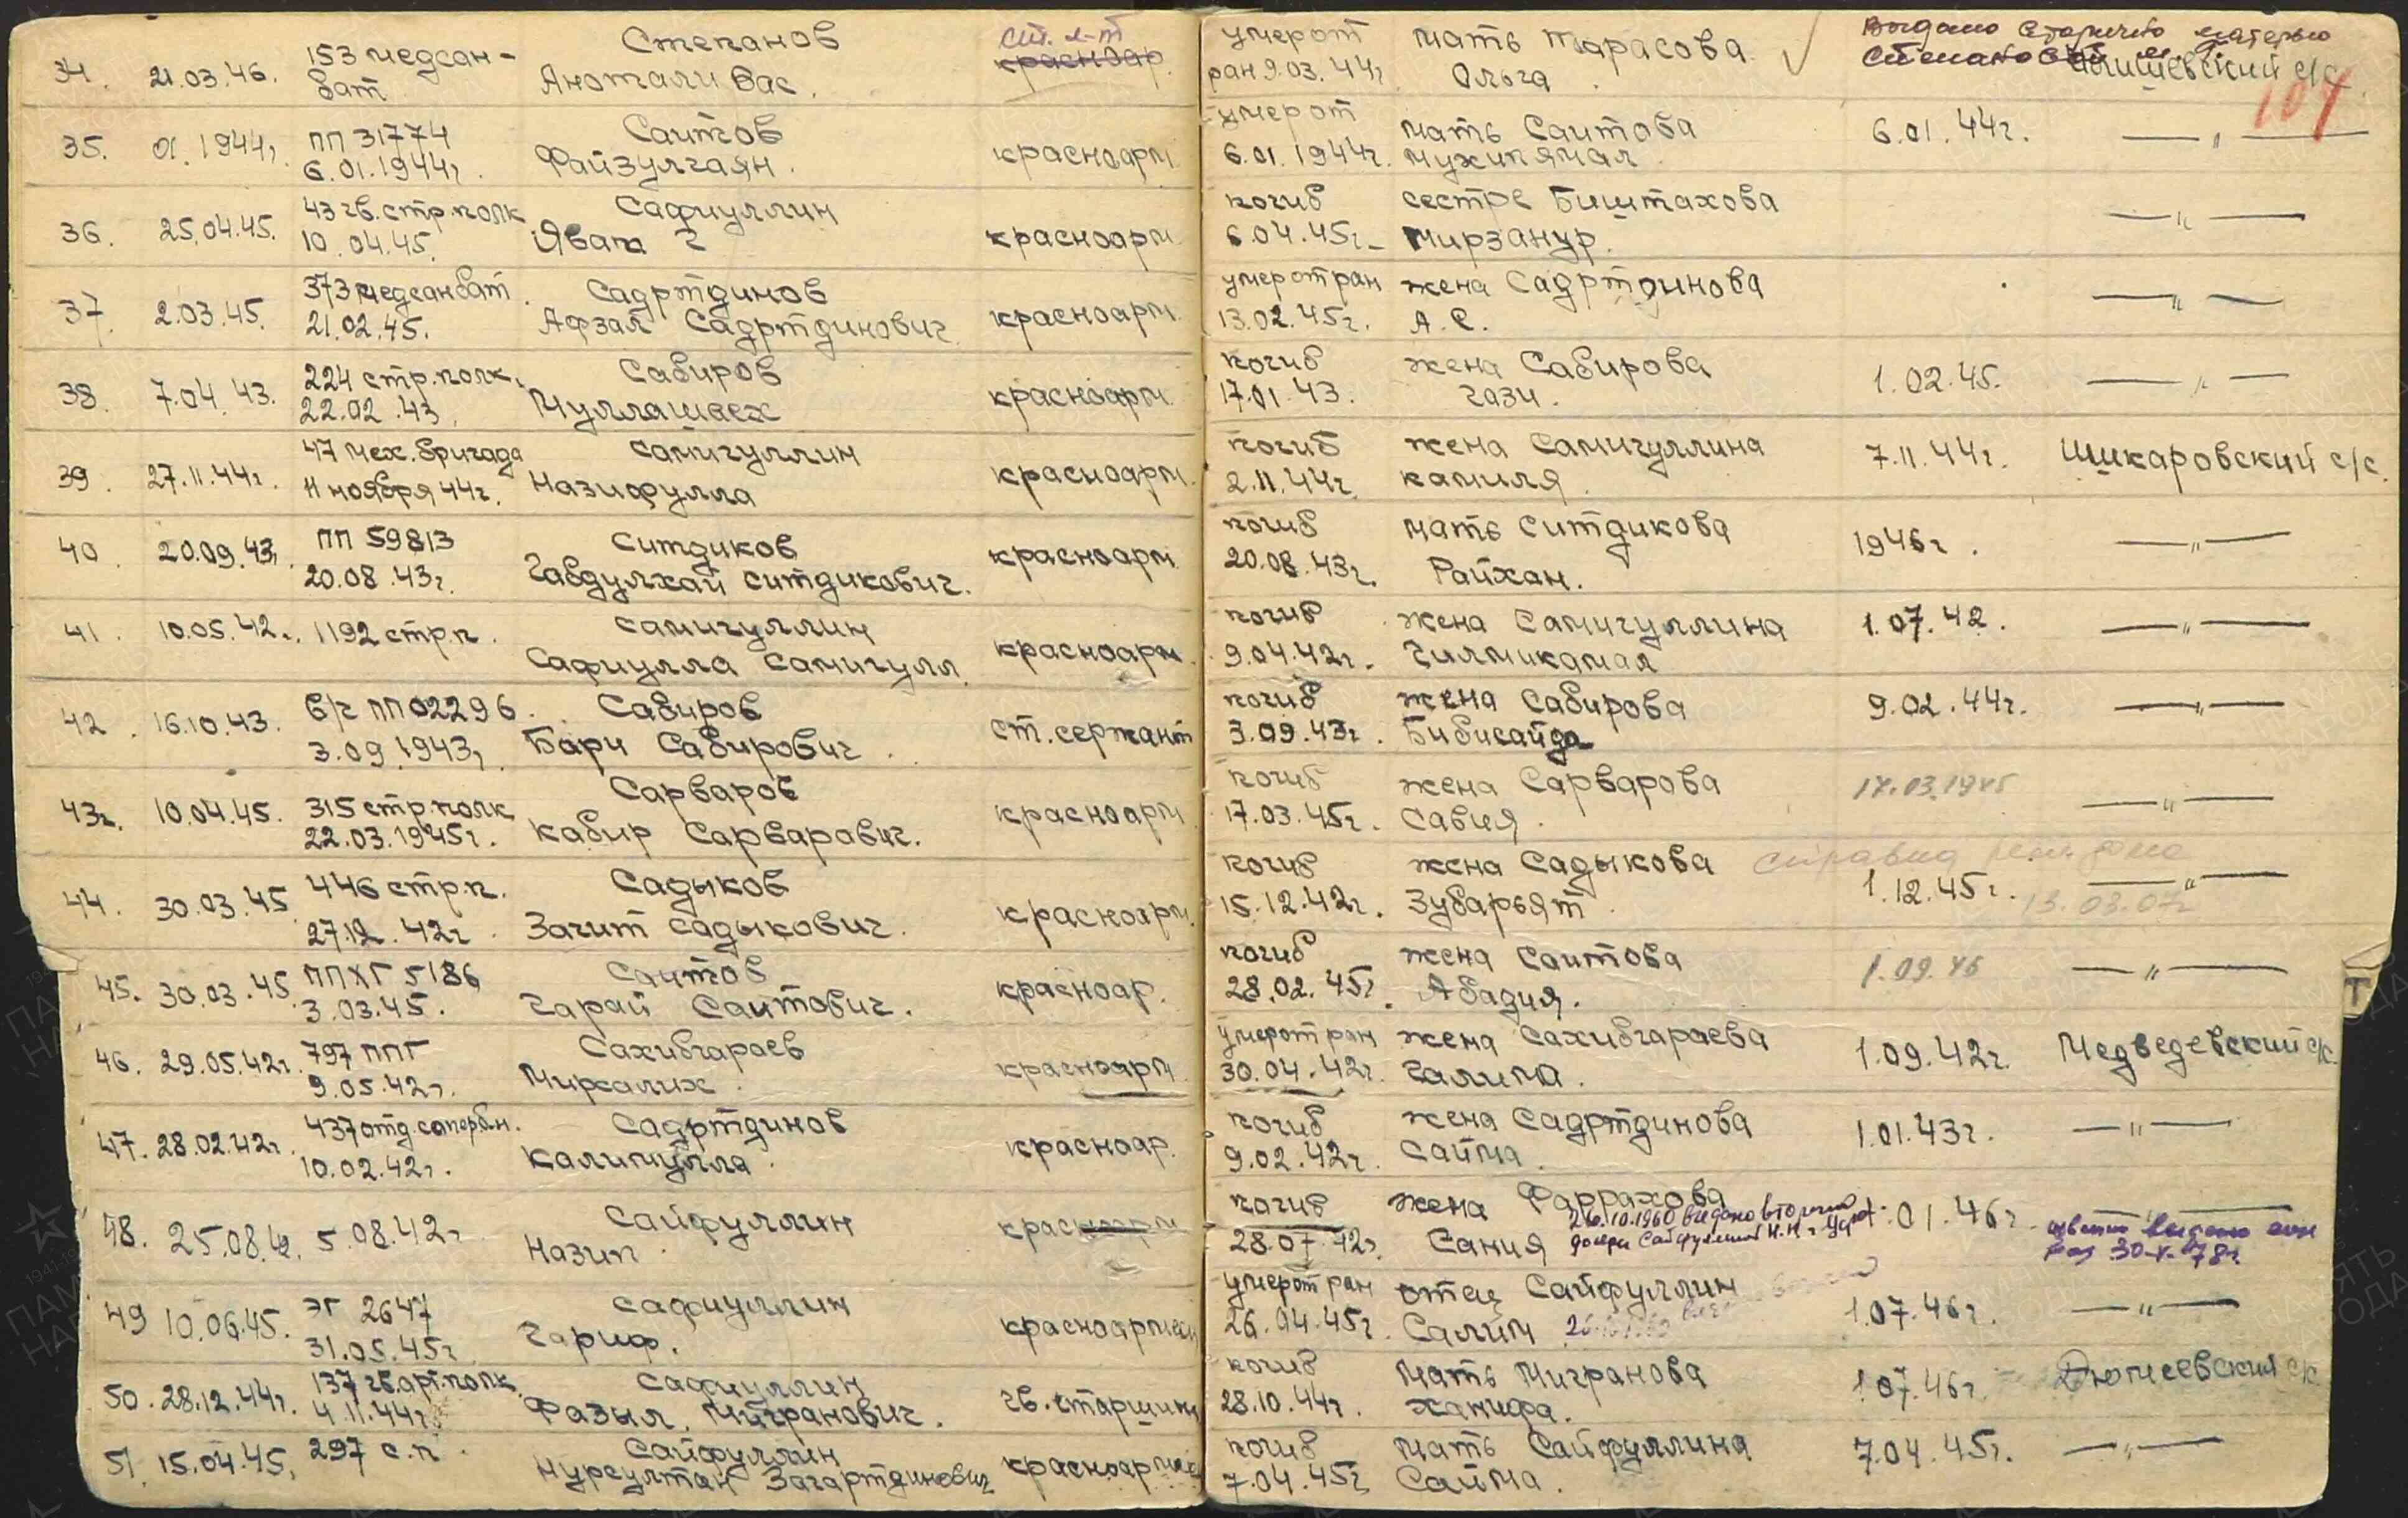 34. 21.03.46. 153 медсан- Степанов ст. л-т умер от мать Тарасова Выдано вторично матерью
бат Анотали Вас. красноар ран 9.03.44г Ольга Степановой с/с
104
35. 01.1944г. ПП 31774 Саитов красноарм. умер от мать Саитова 6.01.44г. — " —
6.01.1944г. Файзулгаян. 6.01.1944г. Мужипямал
36. 25.04.45. 43 гв.стр.полк Сафиуллин красноарм погиб сестре Биштахова — " —
10.04.45. Явать Г 6.04.45г. Мирзанур.
37. 2.03.45. 373 медсанбат. Садртдинов красноарм. умер от ран жена Садртдинова — " —
21.02.45. Афзал Садртдинович. 13.02.45г. А.С.
38. 7.04.43. 224 стр.полк. Сабиров красноарм. погиб жена Сабирова 1.02.45. — " —
22.02.43. Муллашаех 17.01.43. Гази.
39. 27.11.44г. 47 мех.бригада Самигуллин красноарм. погиб жена Самигуллина 7.11.44г. Шикаровский с/с.
11 ноября 44г. Назифулла 2.11.44г. Камиля.
40. 20.09.43г. ПП 59813 Ситдиков красноарм погиб мать Ситдикова 1946г. — " —
20.08.43г. Габдулхай Ситдикович. 20.08.43г. Райхан.
41. 10.05.42г. 1192 стр.п. Самигуллин красноарм. погиб жена Самигуллина 1.07.42. — " —
Сафиулла Самигулл. 9.04.42г. Гилмикамал
42. 16.10.43. в/ч ПП 02296. Сабиров ст.сержант погиб жена Сабирова 9.02.44г. — " —
3.09.1943г. Бари Сабирович. 3.09.43г. Бибисайда
43г. 10.04.45. 315 стр.полк Сарваров красноарм. погиб жена Сарварова 17.03.1945 — " —
22.03.1945г. Кабир Сарварович. 17.03.45г. Савия.
44. 30.03.45 446 стр.п. Садыков красноарм. погиб жена Садыкова 1.12.45г. — " —
27.12.42г. Загит Садыкович. 15.12.42г. Зубарьят 13.03.07г
45. 30.03.45. ППХГ 5186 Саитов красноар. погиб жена Саитова 1.09.46 — " —
3.03.45. Гарай Саитович. 28.02.45г. Абадия.
46. 29.05.42г. 797 ППГ Сахибгараев красноарм умер от ран жена Сахибгараева 1.09.42г. Медведевский с/с.
9.05.42г. Мирхалих. 30.04.42г. Галима.
47. 28.02.42г. 437 отд.саперб-н. Садртдинов красноар. погиб жена Садртдинова 1.01.43г. — " —
10.02.42г. Калимулла. 9.02.42г. Сайма.
48. 25.08.42. 5.08.42г. Сайфуллин красноарм погиб жена Фаррахова 1.01.46г. — " —
Назип. 28.07.42г. Сания 26.10.1960 выдано вторично
дочери Сайфуллиной Н.Н. г. Уфа
выдано
30-V-78г.
49 10.06.45. ЭГ 2647 Сафиуллин красноармеец умер от ран отец Сайфуллин 1.07.46г. — " —
31.05.45г. Гариф. 26.04.45г. Салим
50. 28.12.44г. 137 гв.арт.полк. Сафиуллин гв.старшина погиб мать Мигранова 1.07.46г. Дюмеевский с/с
4.11.44г. Фазыл. Мигранович. 28.10.44г. Ханифа.
51. 15.04.45. 297 с.п. Сайфуллин красноармеец погиб мать Сайфуллина 7.04.45г. — " —
Нурсултан Загартдинович 7.04.45г Сайма.